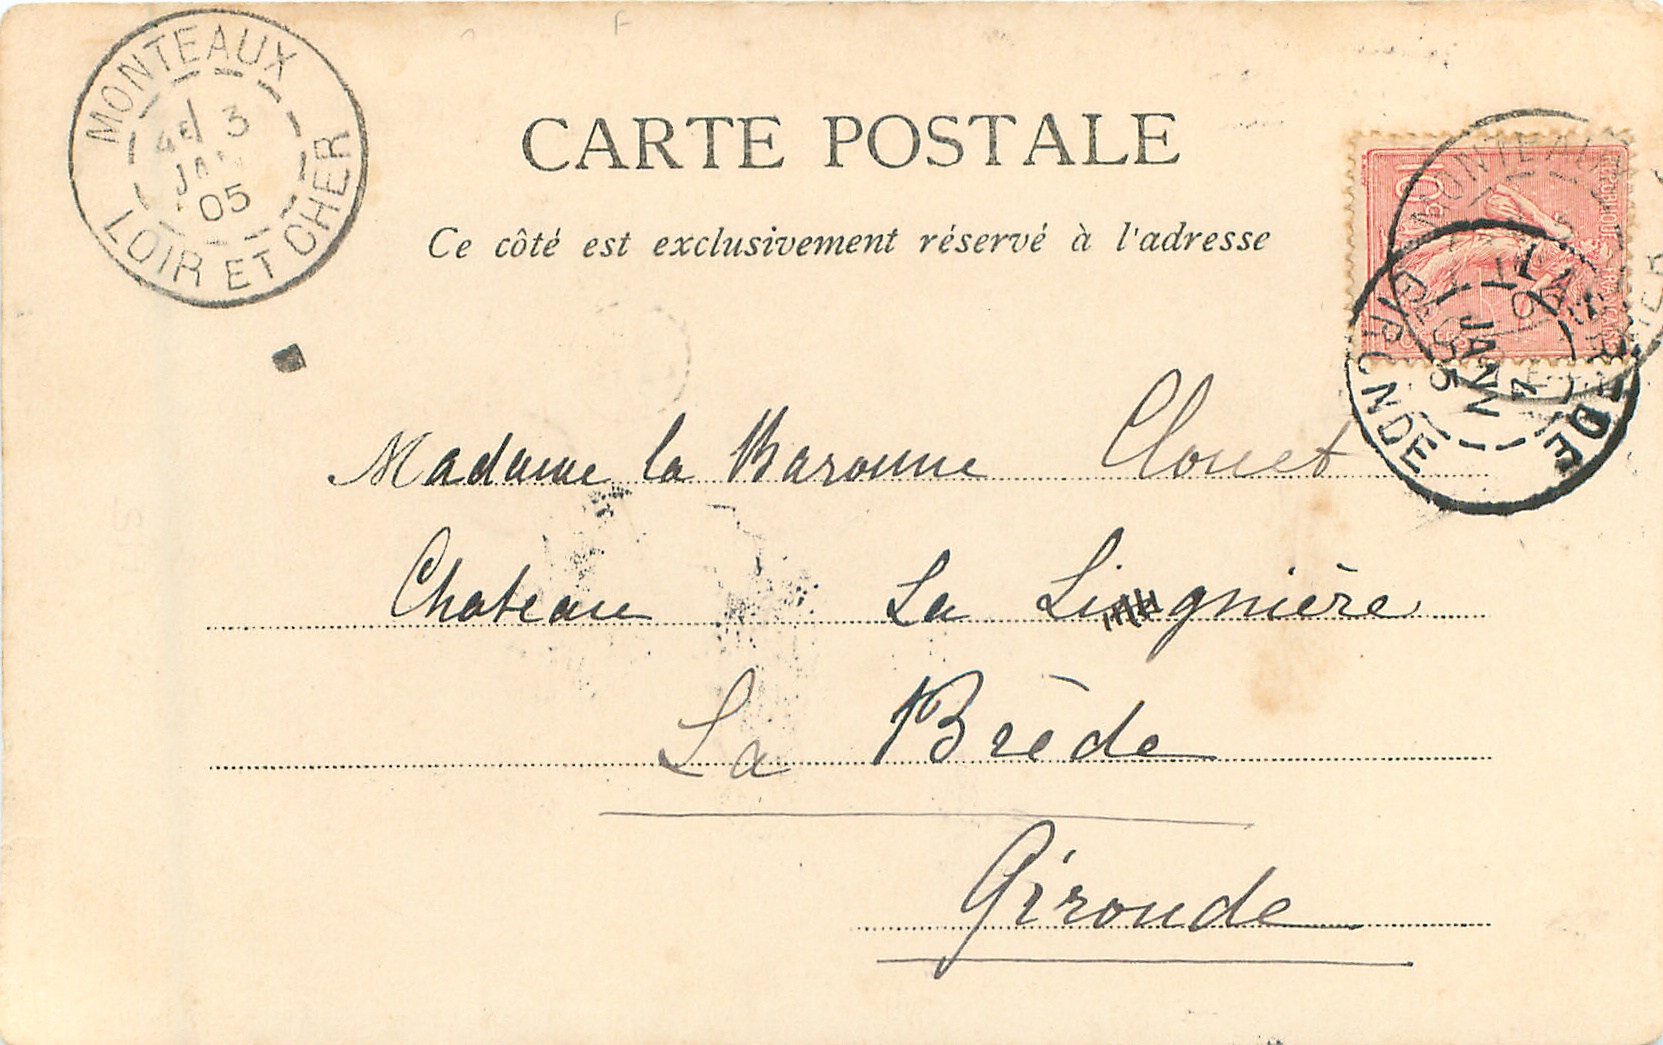 MONTEAUX
4E 3
JANV
05
LOIR ET CHER
CARTE POSTALE
Ce côté est exclusivement réservé à l'adresse
MONTEAUX
LA BREDE
4
JANV
05
GIRONDE
Madame la Baronne Clouet
Chateau La Lignière
La Brède
Gironde